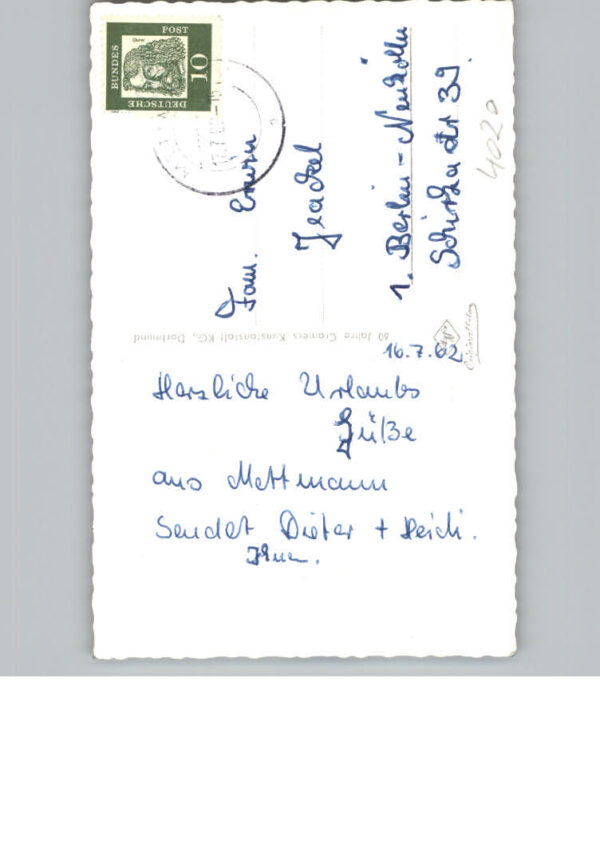 16.7.62
Herzliche Urlaubs
Grüße
aus Mettmann
Sendet Dieter + Heidi.
Fam. Erwin
Jeackel
1. Berlin-Neukölln
39.
4020
60 Jahre Cramers Kunstanstalt KG., Dortmund
DEUTSCHE
BUNDES
POST
10
17.7.62